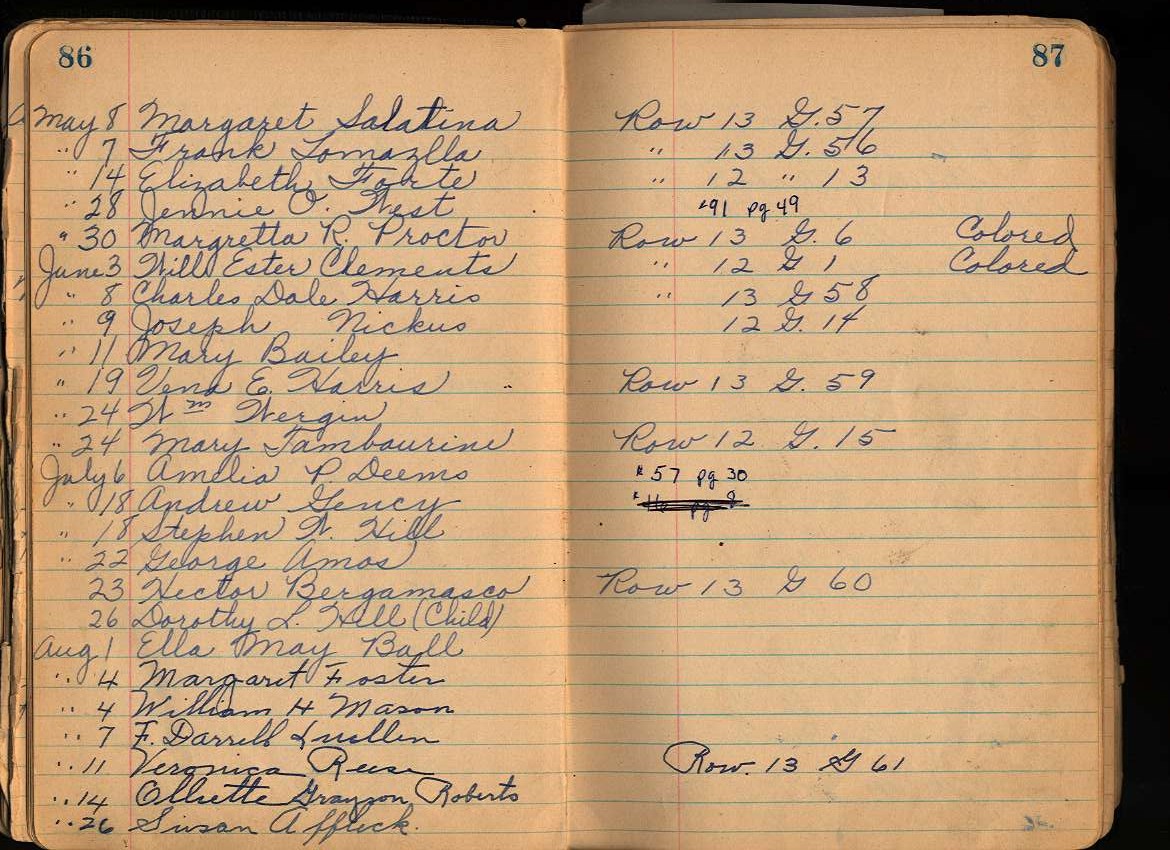 86 87
May 8 Margaret Salatina Row 13 G. 57
" 7 Frank Tomazlla " 13 G. 56
" 14 Elizabeth Foorte " 12 " 13
" 28 Jennie O. West #91 pg 49
" 30 Margretta R. Proctor Row 13 G. 6 Colored
June 3 Will Ester Clements " 12 G 1 Colored
" 8 Charles Dale Harris " 13 G 58
" 9 Joseph Nickus 12 G. 14
" 11 Mary Bailey
" 19 Vena E. Harris Row 13 G. 59
" 24 Wm Wergin
" 24 Mary Tambourine Row 12 G. 15
July 6 Amelia P. Deems #57 pg 30
" 18 Andrew Gency
" 18 Stephen W. Hill
" 22 George Amos
23 Hector Bergamasco Row 13 G 60
26 Dorothy L. Hill (Child)
Aug 1 Ella May Ball
" 4 Margaret Foster
" 4 William H Mason
" 7 F. Darrell Luellen
" 11 Veronica Reese Row. 13 G 61
" 14 Olliette Grayson Roberts
" 26 Susan Affleck.